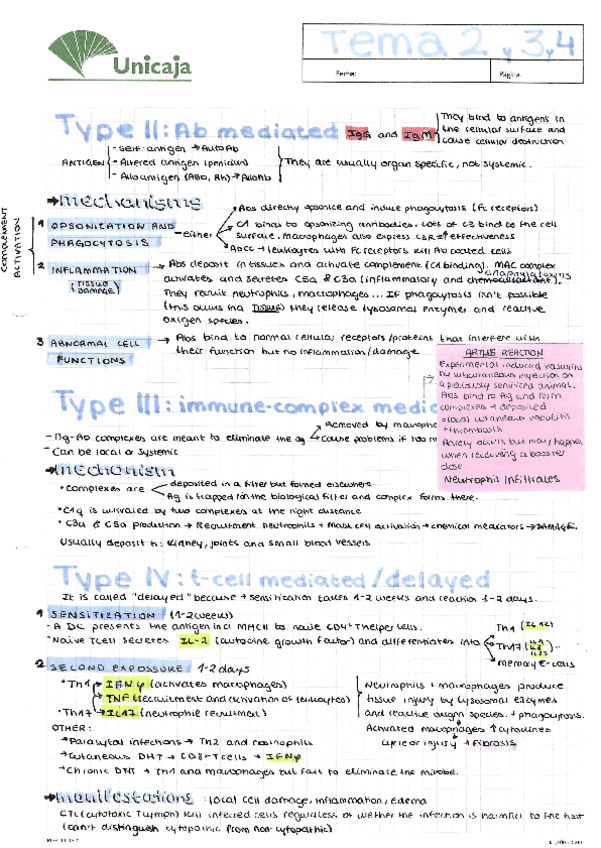 Unicaja
Tema 2, 3, 4
Fecha:
Página:
Type II: Ab mediated IgG and IgM
They bind to antigens in
the cellular surface and
cause cellular destruction
ANTIGEN
- Self: antigen → AutoAb
- Altered antigen (penicilin)
- Alloantigen (ABO, Rh) → AlloAb
They are usually organ specific, not systemic.
→ mechanisms
COMPLEMENT
ACTIVATION
1 OPSONIZATION AND
PHAGOCYTOSIS
either
Abs directly opsonice and induce phagocytosis (Fc receptors)
C1 binds to opsonizing antibodies. Lots of C3 bind to the cell
surface. Macrophages also express C3R effectiveness
ADCC → leukocytes with Fc receptors kill Ab coated cells
2 INFLAMMATION
(TISSUE
DAMAGE)
→ Abs deposit in tissues and activate complement (C1 binding). MAC complex
activates and secretes C5a & C3a (inflammatory and
They recruit neutrophils, macrophages... If phagocytosis isn't possible
(this occurs in a TISSUE) they release lysosomal enzymes and reactive
oxigen species.
3 ABNORMAL CELL
FUNCTIONS
→ Abs bind to normal cellular receptors/proteins that interfere with
their function but no inflammation/damage
ARTHUS REACTION
Experimental induced vasculitis
by subcutaneous injection on
a previously sensitized animal.
Abs bind to Ag and form
complexes → deposited
= local cutaneous vasculitis
+ thrombosis
Rarely occurs but may happen
when receiving a booster
dose.
Neutrophil infiltrates
Type III: immune-complex medi
- Ag-Ab complexes are meant to eliminate the ag
Removed by macroph
cause problems if too m
- Can be local or systemic
→ mechanism
• Complexes are
deposited in a filter but formed elsewhere
Ag is trapped in the biological filter and complex forms there.
• C1q is activated by two complexes at the right distance
• C3a & C5a production → Recruitment neutrophils + Mast cell activation → chemical mediators → DAMAGE.
Usually deposit in: kidney, joints and small blood vessels
Type IV: t-cell mediated/delayed
It is called "delayed" because → sensitization takes 1-2 weeks and reaction 1-2 days.
1 SENSITIZATION (1-2 weeks)
- A DC presents the antigen in MHCII to naive CD4+ T helper cells.
• Naive T cell secretes IL-2 (autocrine growth factor) and differentiates into
Th1 (IL12)
Th17
memory T-cells
2 SECOND EXPOSURE 1-2 days
• Th1
IFNγ (activates macrophages)
TNF (recruitment and activation of leukocytes)
• Th17 → IL17 (neutrophil recruitment)
Neutrophils + macrophages produce
tissue injury by lysosomal enzymes
and reactive oxigen species. + phagocytosis.
Activated macrophages ↑ cytokines
cycle of injury → Fibrosis
OTHER:
→ Parasytal infections → Th2 and eosinophils
→ Cutaneous DHT → CD8-T cells → IFNγ
→ Chronic DHT → Th1 and macrophages but fail to eliminate the microbe.
→ manifestations local cell damage, inflammation, edema
CTL (cytotoxic T lymph) kill infected cells regardless of wether the infection is harmful to the host
(can't distinguish cytopathic from non cytopathic)